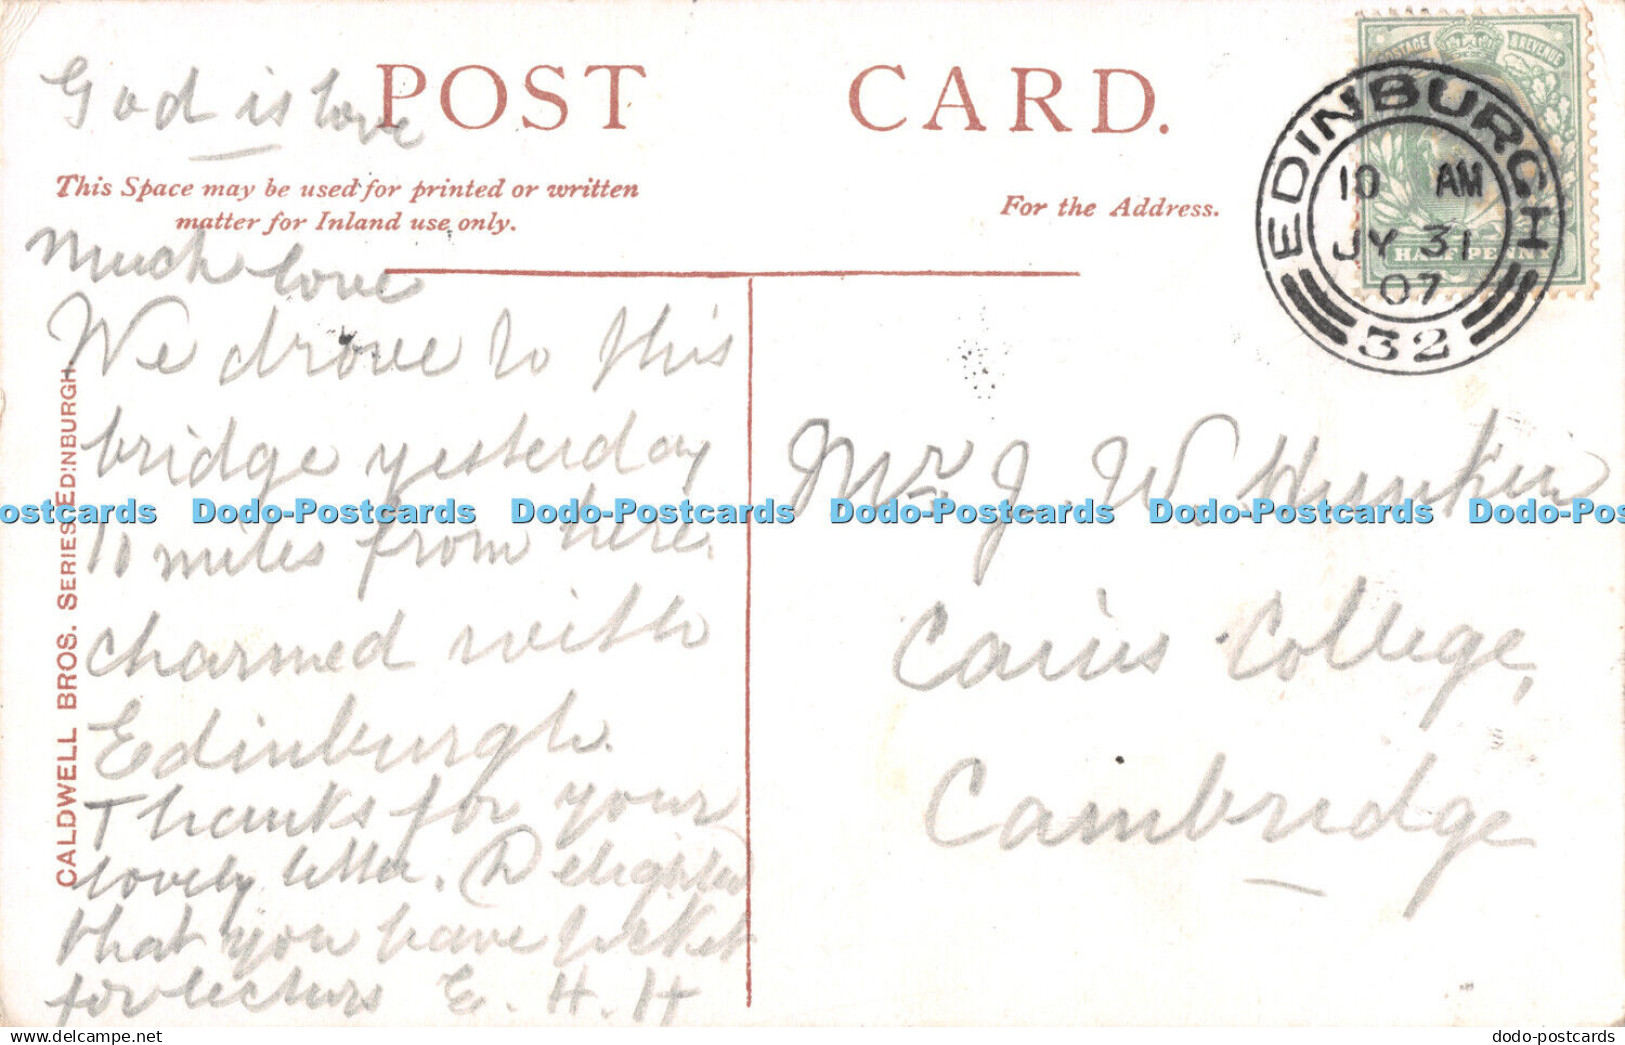 POST CARD.
God is love
This Space may be used for printed or written
matter for Inland use only.
For the Address.
POSTAGE & REVENUE
HALF PENNY
EDINBURGH
10 AM
JY 31
07
32
much love
We drove to this
bridge yesterday
10 miles from here.
charmed with
Edinburgh.
Thanks for your
lovely letter. Delighted
that you have ticket
for lectures E. H. H
Mr. J. W. Hunkin
Caius College,
Cambridge
CALDWELL BROS. SERIES EDINBURGH.
ostcards Dodo-Postcards Dodo-Postcards Dodo-Postcards Dodo-Postcards Dodo-Pos
dodo-postcards.com
dodo-postcards